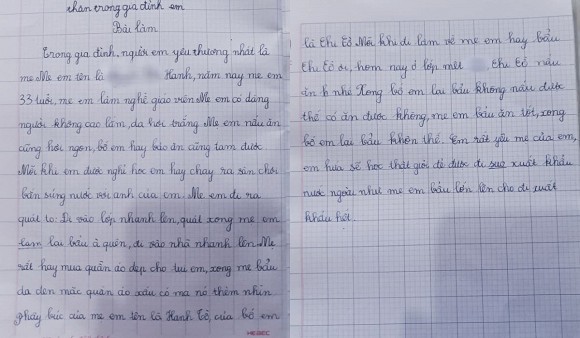 thân trong gia đình em
Bài làm
Trong gia đình, người em yêu thương nhất là
mẹ. Mẹ em tên là Hanh, năm nay mẹ em
33 tuổi, mẹ em làm nghề giáo viên. Mẹ em có dáng
người không cao lắm, da hơi trắng. Mẹ em nấu ăn
cũng hơi ngon, bố em hay bảo ăn cũng tạm được
Mỗi khi em được nghỉ học em hay chạy ra sân chơi
bắn súng nước với anh của em. Mẹ em đi ra
quát to: Đi vào lớp nhanh lên, quát xong mẹ em
lại bẩu à quên, đi vào nhà nhanh lên. Mẹ
rất hay mua quần áo đẹp cho tui em, xong mẹ bẩu
da đen mặc quần áo xấu có ma nó thèm nhìn
phây búc của mẹ em tên là Hanh Tồ, của bố em
là thu tồ. Mỗi khi đi làm về mẹ em hay bẩu
thu tồ ơi, hôm nay ở lớp mệt thu tồ nấu
ăn nhé. Xong bố em lại bẩu không nấu được
thế có ăn được không, mẹ em bẩu ăn tốt, xong
bố em lại bẩu khôn thế. Em rất yêu mẹ của em,
em hứa sẽ học thật giỏi để được đi xuất khẩu
nước ngoài như mẹ em bẩu lớn lên cho đi xuất
khẩu hết.
HEBEC